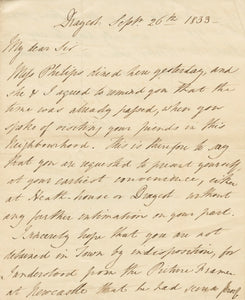 Draycot. Sept. 26th 1833 –
My dear Sir
Miss Philips dined here yesterday, and
she & I agreed to remind you that the
time was already passed, when you
spoke of visiting your friends in this
Neighbourhood. This is therefore to say
that you are requested to present yourself
at your earliest convenience, either
at Heath house or Draycot without
any further intimation on your part.
I sincerely hope that you are not
detained in Town by indisposition, for
I understood from the Picture Framer
at Newcastle that he had seen a proof